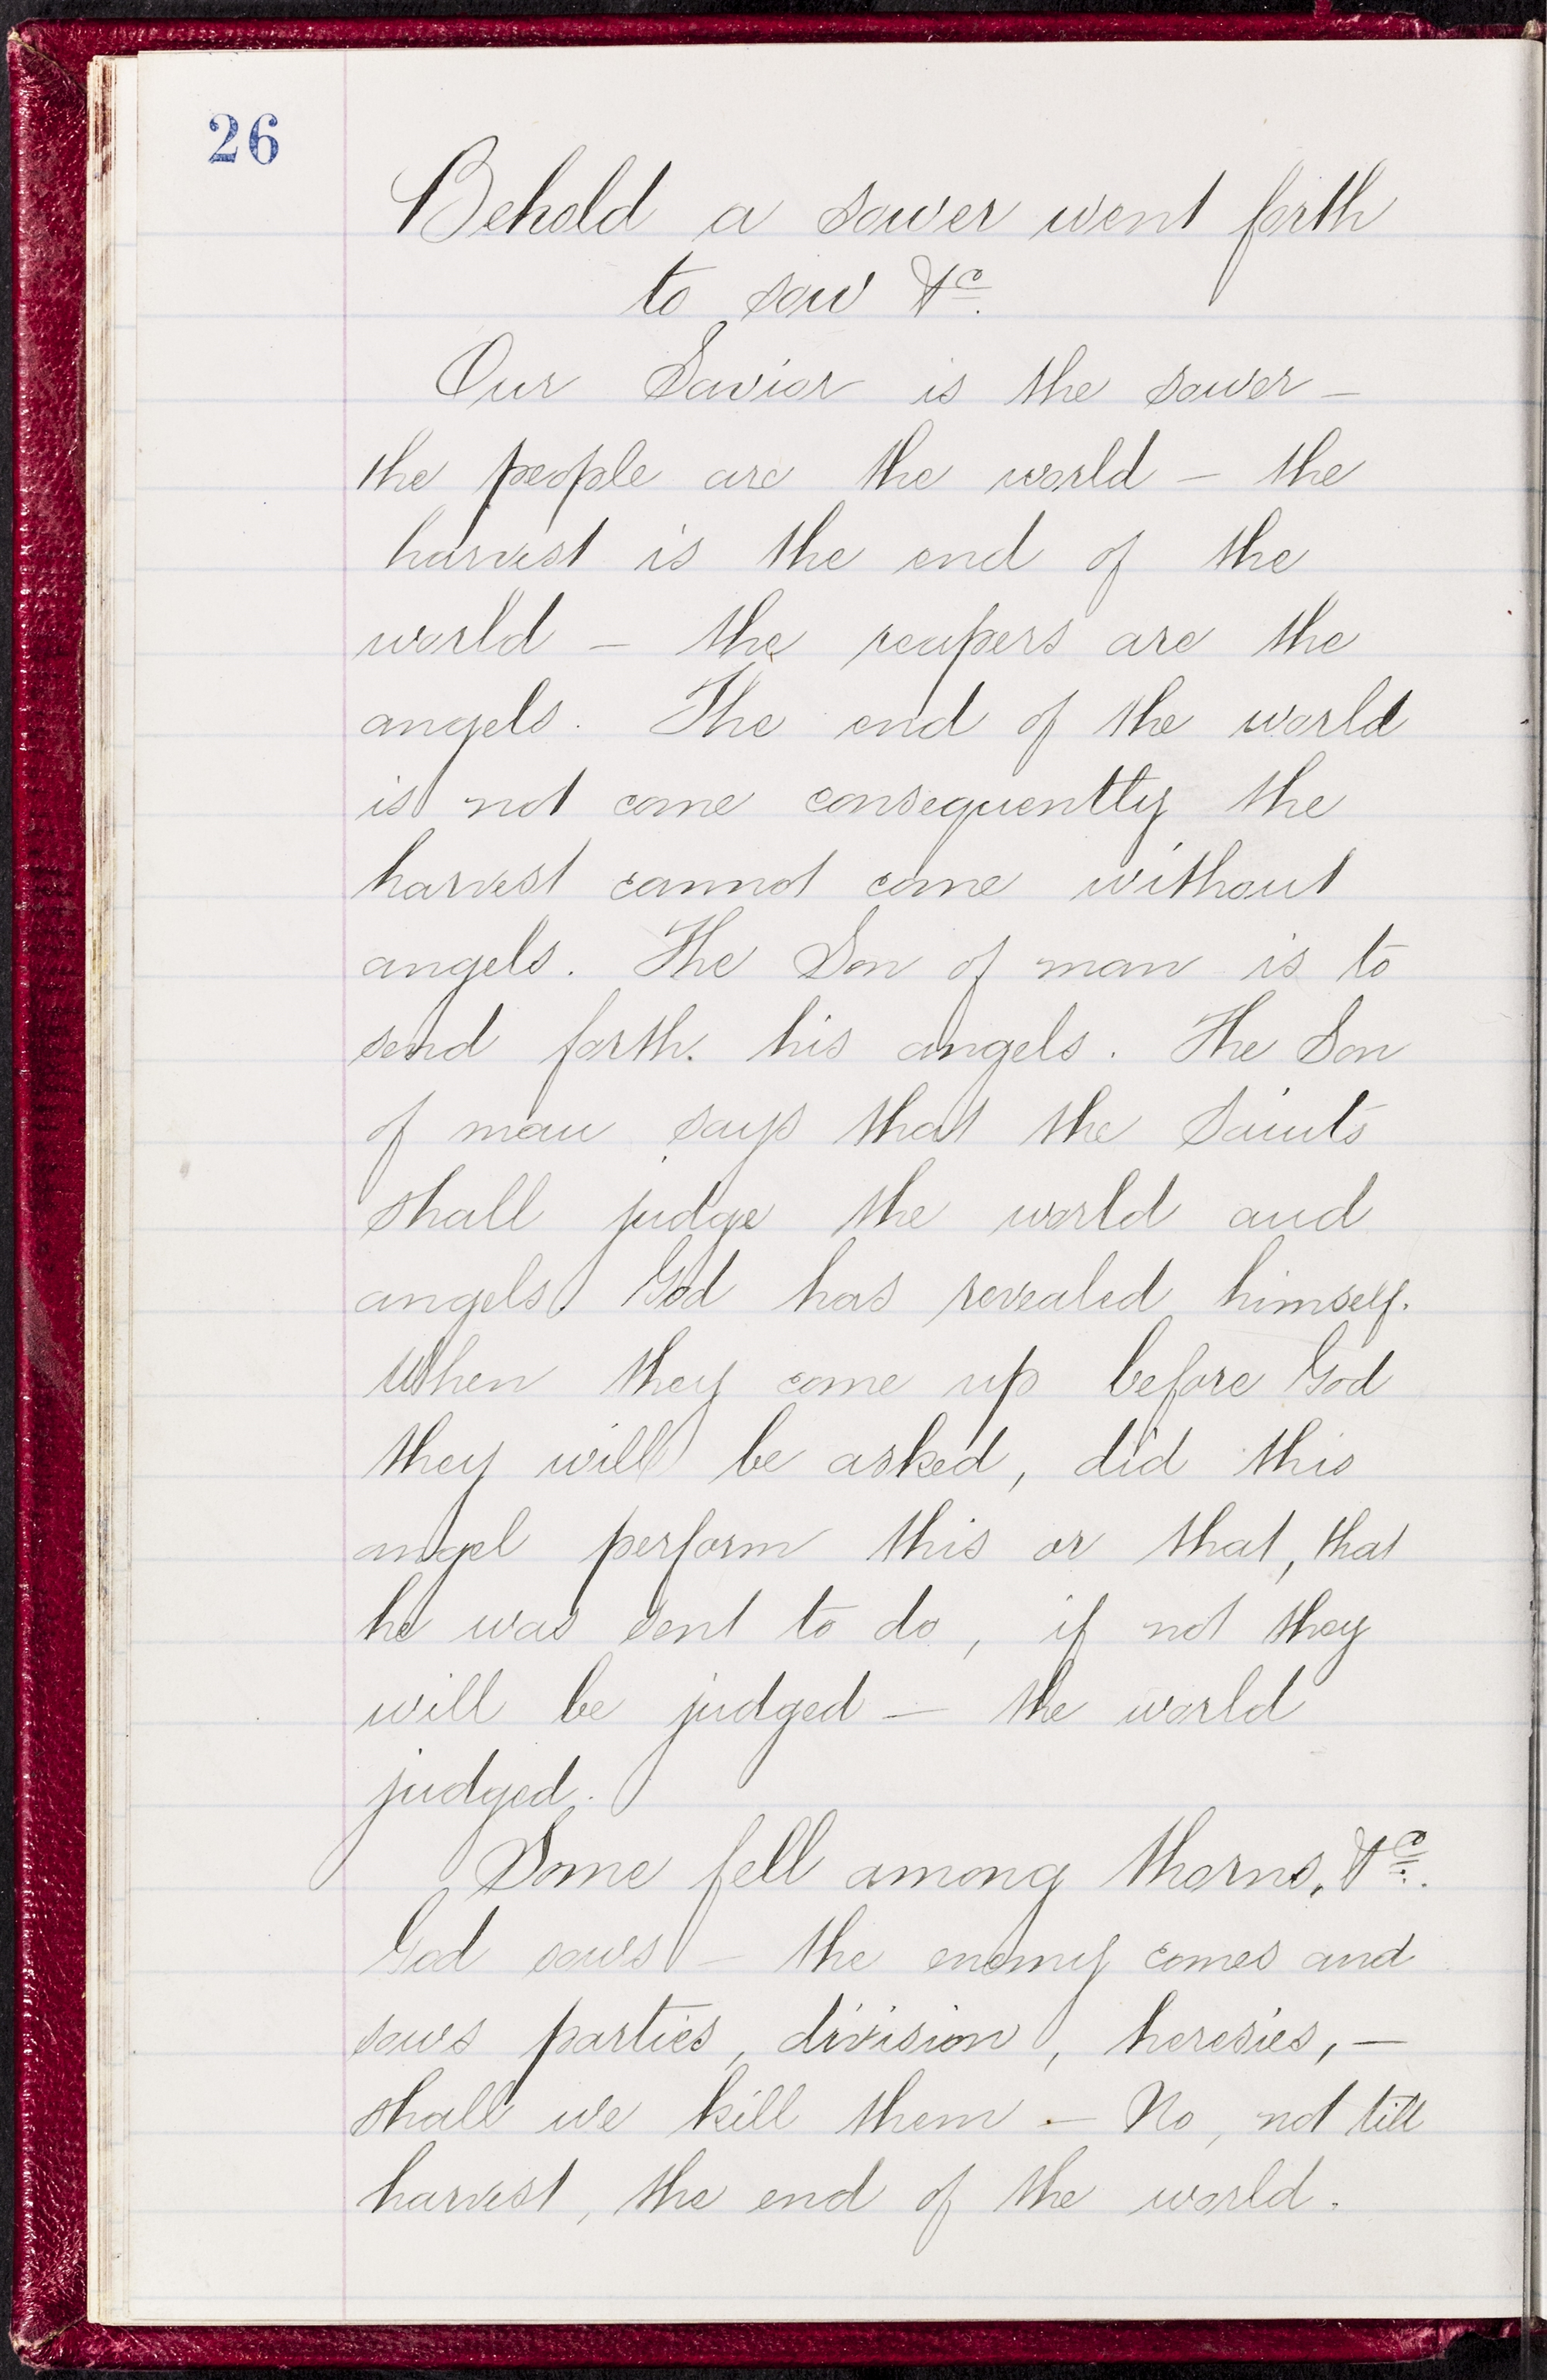 26
Behold a sower went forth
to sow &c.
Our Savior is the sower –
the people are the world – the
harvest is the end of the
world – the reapers are the
angels. The end of the world
is not come consequently the
harvest cannot come without
angels. The Son of man is to
send forth. his angels. The Son
of man says that the Saints
shall judge the world and
angels. God has revealed himself.
When they come up before God
they will be asked, did this
angel perform this or that, that
he was sent to do, if not they
will be judged – the world
judged.
Some fell among thorns, &c.
God sows – the enemy comes and
sows parties, division, heresies, –
shall we kill them – No, not till
harvest, the end of the world.